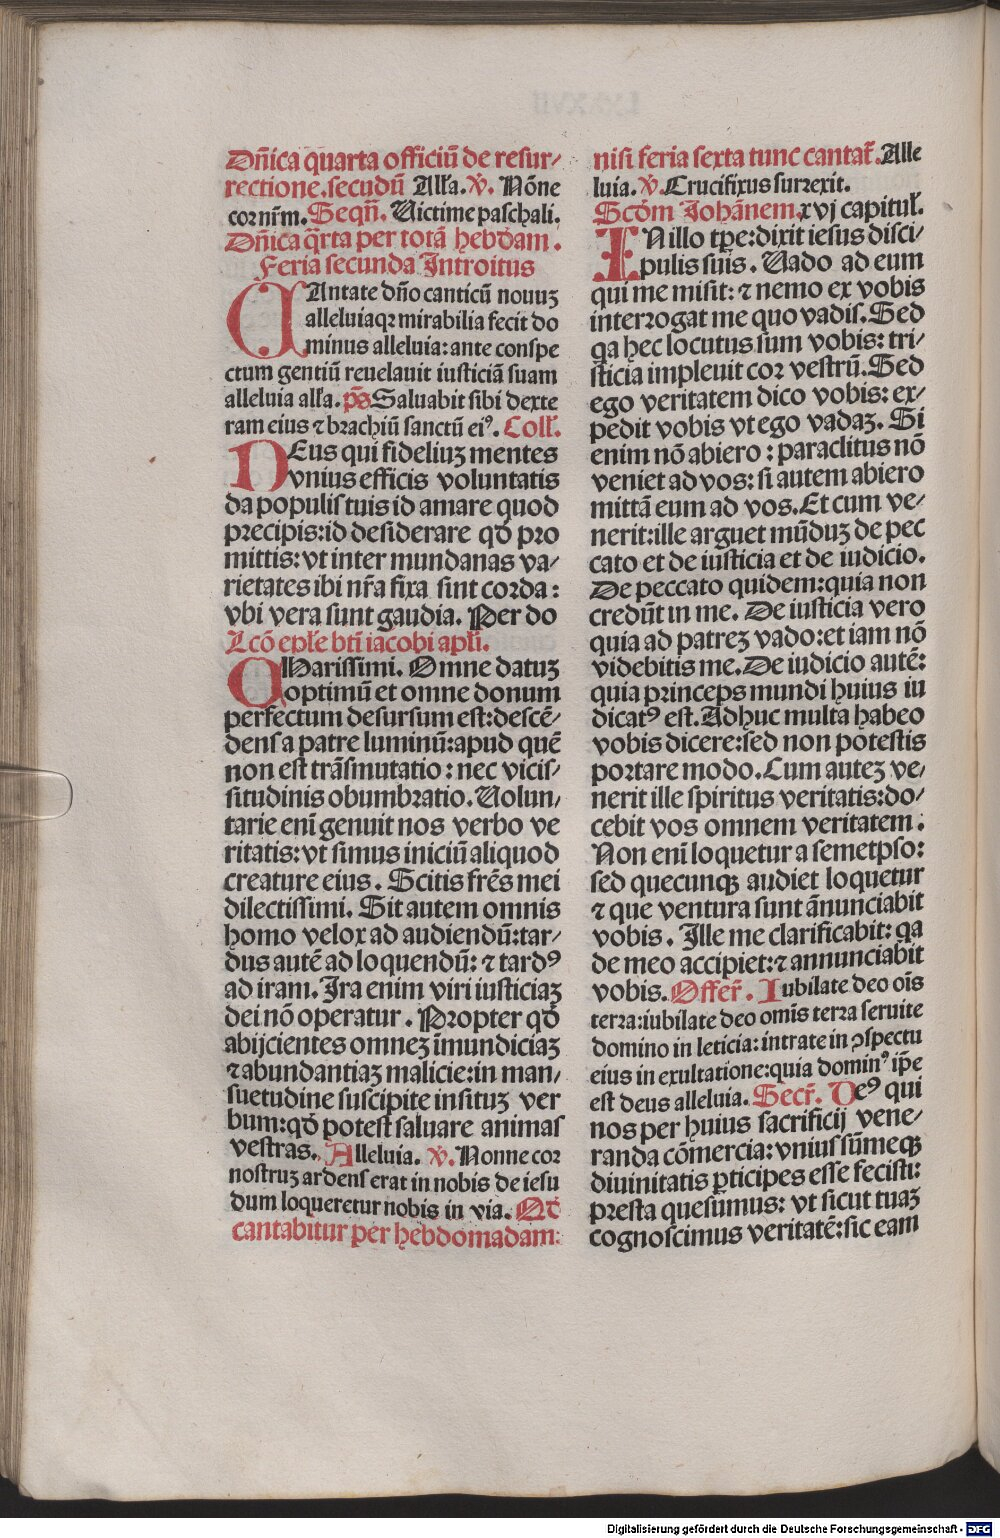 Dñica quarta officiū de resur⸗
rectione.secūdū Alła.℣. Nōne
cor nr̄m. Seqn̄. Uictime paschali.
Dñica q̄rta per totā hebdam.
Feria secunda Introitus
CAntate dño canticū nouuꝫ
alleluia:qꝛ mirabilia fecit do
minus alleluia: ante conspe
ctum gentiū reuelauit iusticiā suam
alleluia alła. ps̄ Saluabit sibi dexte
ram eius ⁊ brachiū sanctū eiꝰ. Coll̄.
DEus qui fideliuꝫ mentes
vnius efficis voluntatis
da populis tuis id amare quod
precipis:id desiderare qd̄ pro
mittis: vt inter mundanas va⸗
rietates ibi nr̄a fixa sint corda:
vbi vera sunt gaudia. Per do
Lcō epl̄e bt̄i iacobi apl̄i.
CHarissimi. Omne datuꝫ
optimū et omne donum
perfectum desursum est:descē⸗
dens a patre luminū:apud quē
non est trāsmutatio: nec vicis⸗
situdinis obumbratio. Uolun⸗
tarie enī genuit nos verbo ve
ritatis: vt simus iniciū aliquod
creature eius. Scitis frēs mei
dilectissimi. Sit autem omnis
homo velox ad audiendū:tar⸗
dus autē ad loquendū: ⁊ tardꝰ
ad iram. Ira enim viri iusticiaꝫ
dei nō operatur. Propter qd̄
abijcientes omneꝫ īmundiciaꝫ
⁊ abundantiaꝫ malicie:in man⸗
suetudine suscipite insituꝫ ver
bum:qd̄ potest saluare animas
vestras. Alleluia. ℣. Nonne cor
nostruꝫ ardens erat in nobis de iesu
dum loqueretur nobis in via. Qd̄
cantabitur per hebdomadam:
nisi feria sexta tunc cantat̄. Alle
luia. ℣. Crucifixus surrexit.
Scd̄m Johānem. xvj capitul̄.
IN illo tꝑe:dixit iesus disci⸗
pulis suis. Uado ad eum
qui me misit: ⁊ nemo ex vobis
interrogat me quo vadis. Sed
qa hec locutus sum vobis: tri⸗
sticia impleuit cor vestrū. Sed
ego veritatem dico vobis: ex⸗
pedit vobis vt ego vadaꝫ. Si
enim nō abiero: paraclitus nō
veniet ad vos: si autem abiero
mittā eum ad vos. Et cum ve⸗
nerit:ille arguet mūduꝫ de pec
cato et de iusticia et de iudicio.
De peccato quidem:quia non
credūt in me. De iusticia vero
quia ad patreꝫ vado:et iam nō
videbitis me. De iudicio autē:
quia princeps mundi huius iu
dicatꝰ est. Adhuc multa habeo
vobis dicere:sed non potestis
portare modo. Cum auteꝫ ve⸗
nerit ille spiritus veritatis:do⸗
cebit vos omnem veritatem.
Non enī loquetur a semetp̄so:
sed quecunqꝫ audiet loquetur
⁊ que ventura sunt ānunciabit
vobis. Ille me clarificabit: qa
de meo accipiet:⁊ annunciabit
vobis. Offer̄. Iubilate deo oīs
terra:iubilate deo omīs terra seruite
domino in leticia: intrate in ꝯspectu
eius in exultatione:quia dominꝰ ip̄e
est deus alleluia. Secr̄. Deꝰ qui
nos per huius sacrificij vene⸗
randa cōmercia: vnius sūmeqꝫ
diuinitatis ꝑticipes esse fecisti:
presta quesumus: vt sicut tuaꝫ
cognoscimus veritatē:sic eam
Digitalisierung gefördert durch die Deutsche Forschungsgemeinschaft - DFG